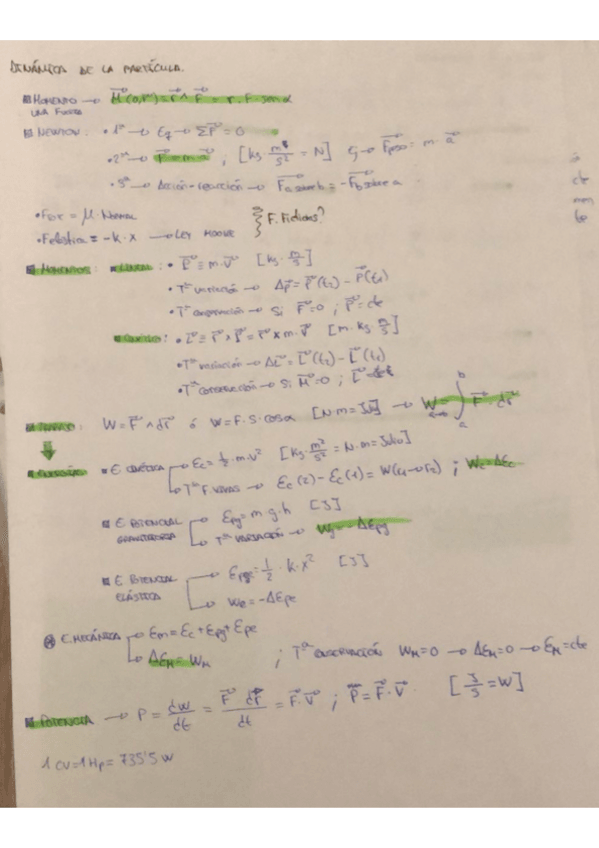 DINÁMICA DE LA PARTÍCULA.
MOMENTO → M⃗(o,r) = r⃗ ∧ F⃗ = r · F · sen α
UNA FUERZA
NEWTON: • 1ª → Eq → ΣF⃗ = 0
• 2ª → F⃗ = m · a⃗ ; [kg · m/s² = N] → F⃗peso = m · a⃗
• 3ª → Acción-reacción → F⃗a sobre b = -F⃗b sobre a
• Froz = μ · Normal
F. Ficticias?
• Felástica = -k · x → LEY HOOKE
MOMENTOS: LINEAL: • P⃗ ≡ m · v⃗ [kg · m/s]
• Tª variación → Δp⃗ = p⃗(t₂) - p⃗(t₁)
• Tª conservación → Si F⃗=0 ; p⃗ = cte
• L⃗ ≡ r⃗ × p⃗ = r⃗ × m · v⃗ [m · kg · m/s]
• Tª variación → ΔL⃗ = L⃗(t₂) - L⃗(t₁)
• Tª conservación → Si M⃗=0 ; L⃗ = cte
TRABAJO: W = F⃗ ∧ dr⃗ ó W = F · S · cos α [N·m = J] → W = ∫ₐᵇ F⃗ · dr⃗
ENERGÍA: E CINÉTICA → Ec = ½ · m · v² [kg · m²/s² = N · m = Julio]
→ Tª F. VIVAS → Ec(2) - Ec(1) = W(r₁→r₂) ; Wc = ΔEc
E POTENCIAL GRAVITATORIA → Epg = m · g · h [J]
→ Tª VARIACIÓN → Wg = -ΔEpg
E POTENCIAL ELÁSTICA → Epe = ½ · k · x² [J]
→ We = -ΔEpe
E. MECÁNICA → Em = Ec + Epg + Epe
→ ΔEM = WM ; Tª CONSERVACIÓN WM = 0 → ΔEM = 0 → EM = cte
POTENCIA → P = dW/dt = F⃗ · dr⃗/dt = F⃗ · v⃗ ; P = F⃗ · v⃗ [J/s = W]
1 CV = 1 Hp = 735'5 W